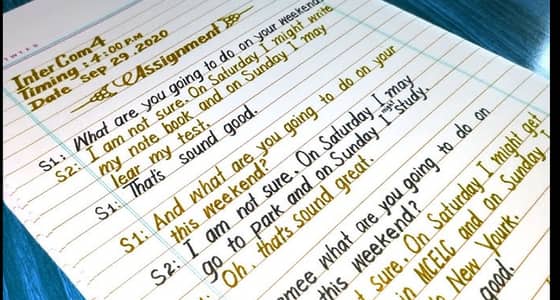 InterCom 4
Timing : 4:00 P.M
Date Sep 29, 2020
Assignment
S1: What are you going to do on your weekend
S2: I am not sure. On Saturday I might write
my note book and on Sunday I may
lear my test.
S1: That's sound good.
S1: And what are you going to do on your
this weekend?
S2: I am not sure. On Saturday I may
go to park and on Sunday I might study.
Oh, that's sound great.
mee what are you going to do on
this weekend?
t sure. On Saturday I might get
in MCELC and on Sunday I
New Yourk.
good.